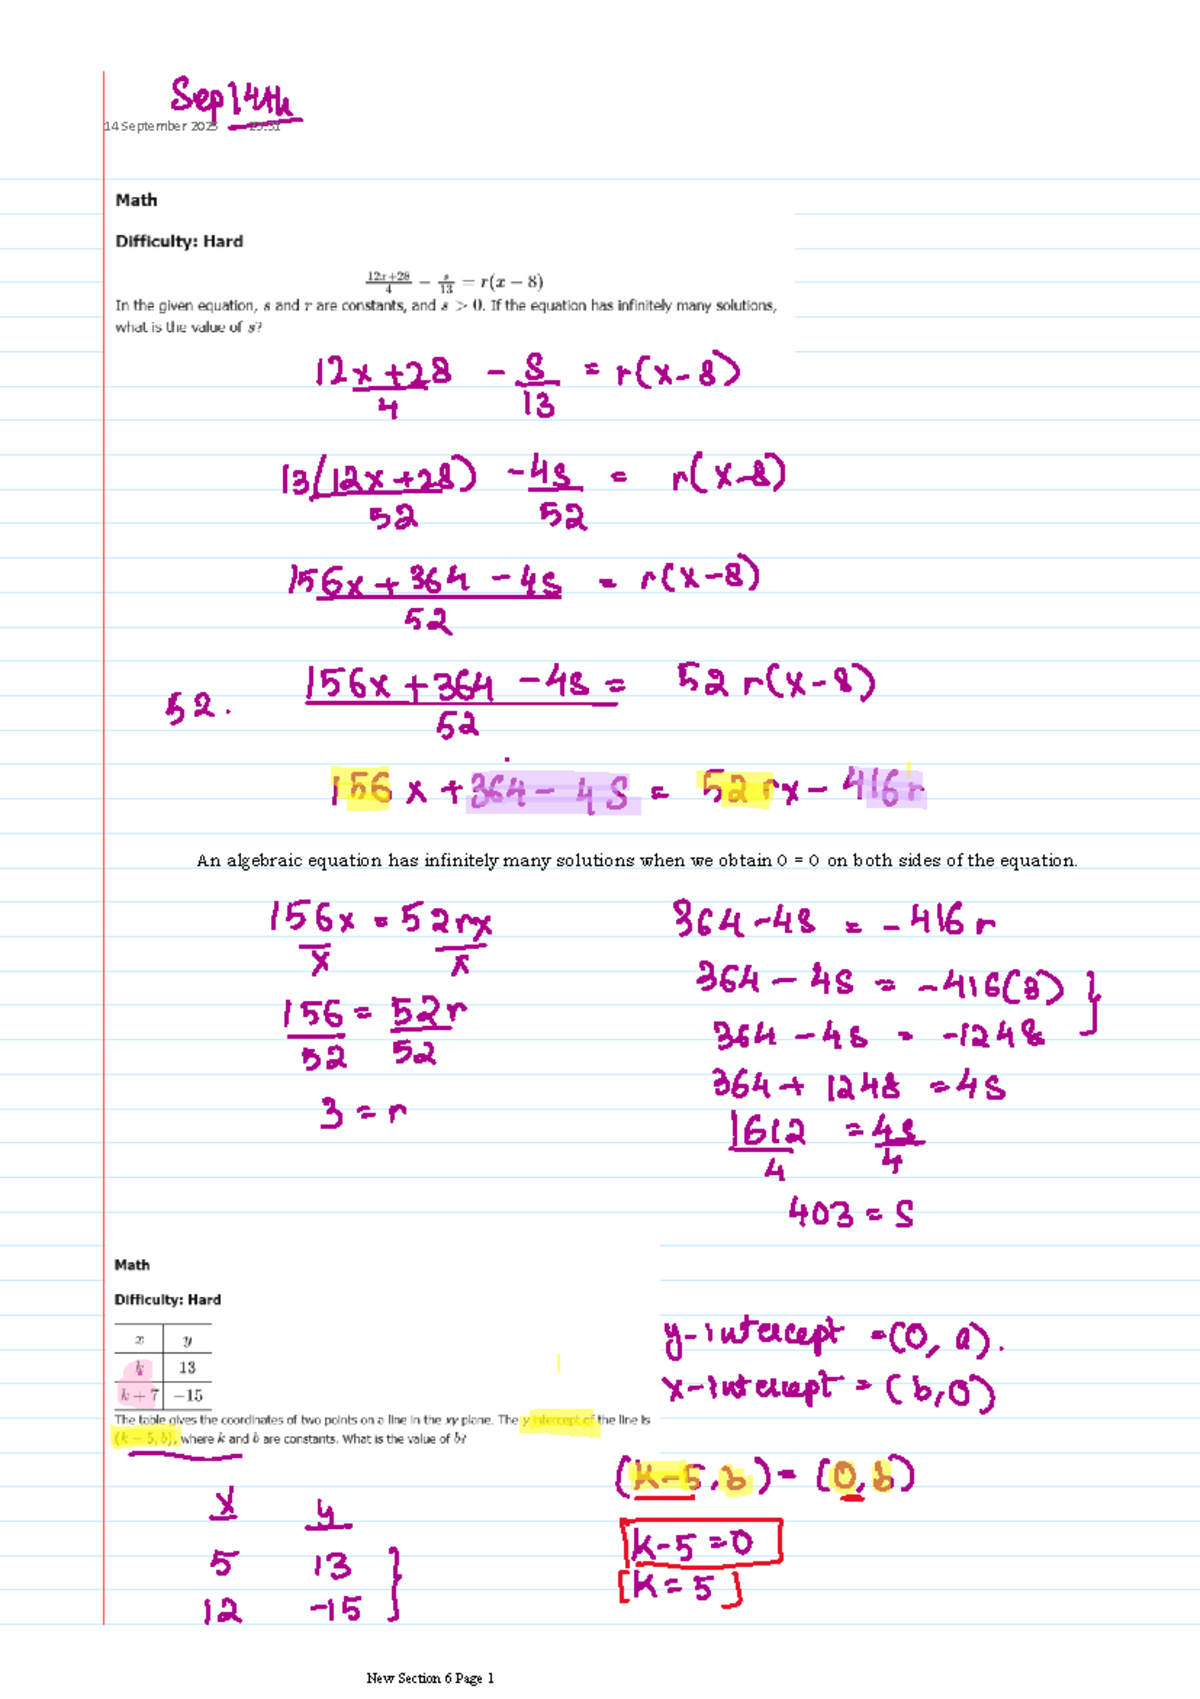 Sep14th
14 September 2023 15:31
Math
Difficulty: Hard
(12x+28)/4 − s/13 = r(x − 8)
In the given equation, s and r are constants, and s > 0. If the equation has infinitely many solutions,
what is the value of s?
(12x+28)/4 - S/13 = r(x-8)
13(12x+28)/52 - 4s/52 = r(x-8)
(156x+364-4s)/52 = r(x-8)
52. (156x+364-4s)/52 = 52r(x-8)
156x+364-4S = 52rx-416r
An algebraic equation has infinitely many solutions when we obtain 0 = 0 on both sides of the equation.
156x/x = 52rx/x
156/52 = 52r/52
3 = r
364-4s = -416r
364-4s = -416(3)
364-4s = -1248
364+1248 = 4s
1612/4 = 4s/4
403 = S
Math
Difficulty: Hard
x y
k 13
k + 7 −15
The table gives the coordinates of two points on a line in the xy plane. The y intercept of the line is
(k − 5, b), where k and b are constants. What is the value of b?
x y
5 13
12 -15
y-intercept = (0, a).
x-intercept = (b,0)
(k-5,b) = (0,b)
k-5=0
k=5
New Section 6 Page 1